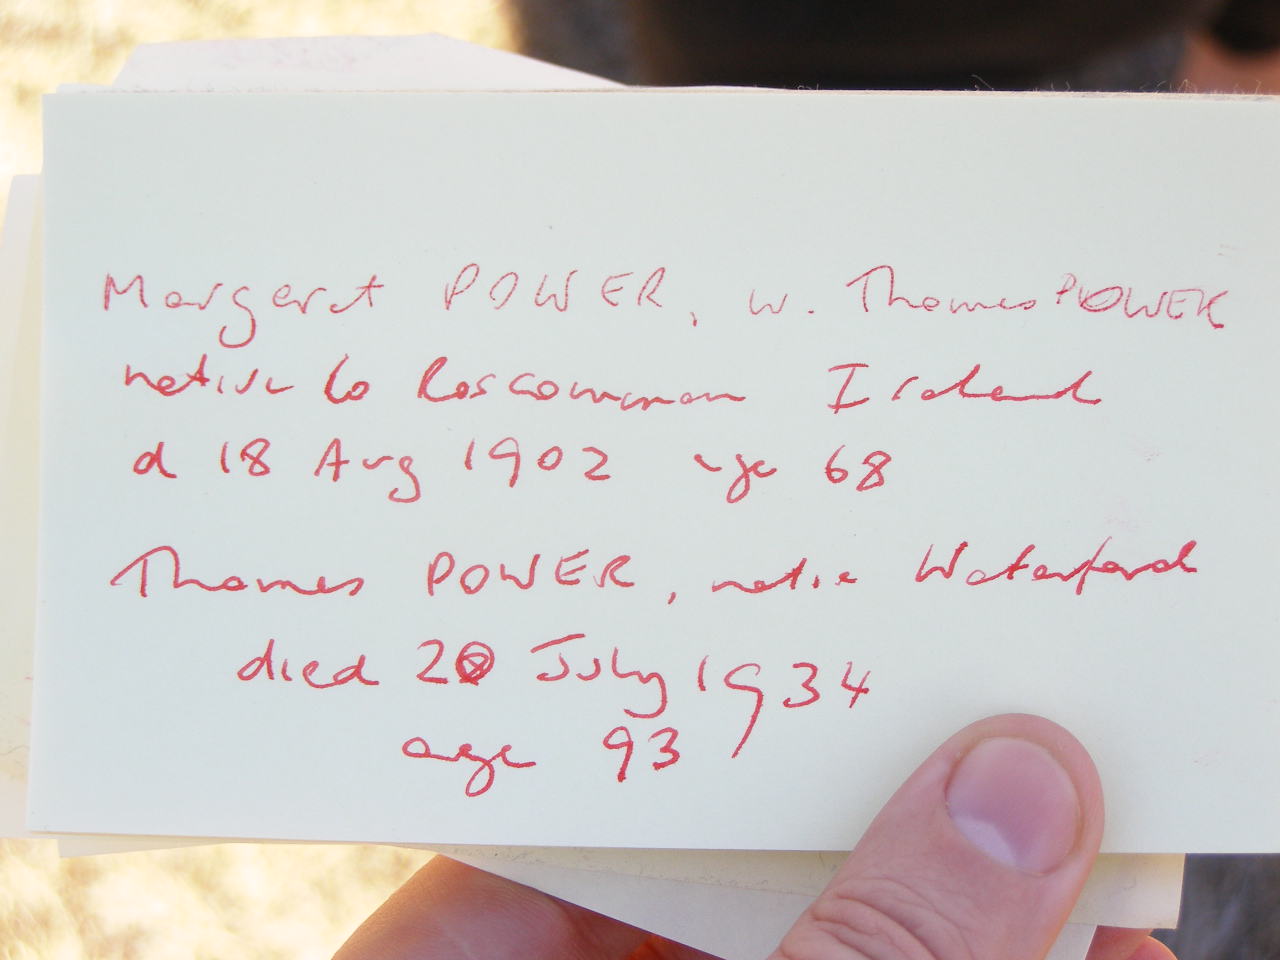 Margaret POWER, w. Thomas POWER
native Co Roscommon Ireland
d 18 Aug 1902 age 68
Thomas POWER, native Waterford
died 20 July 1934
age 93